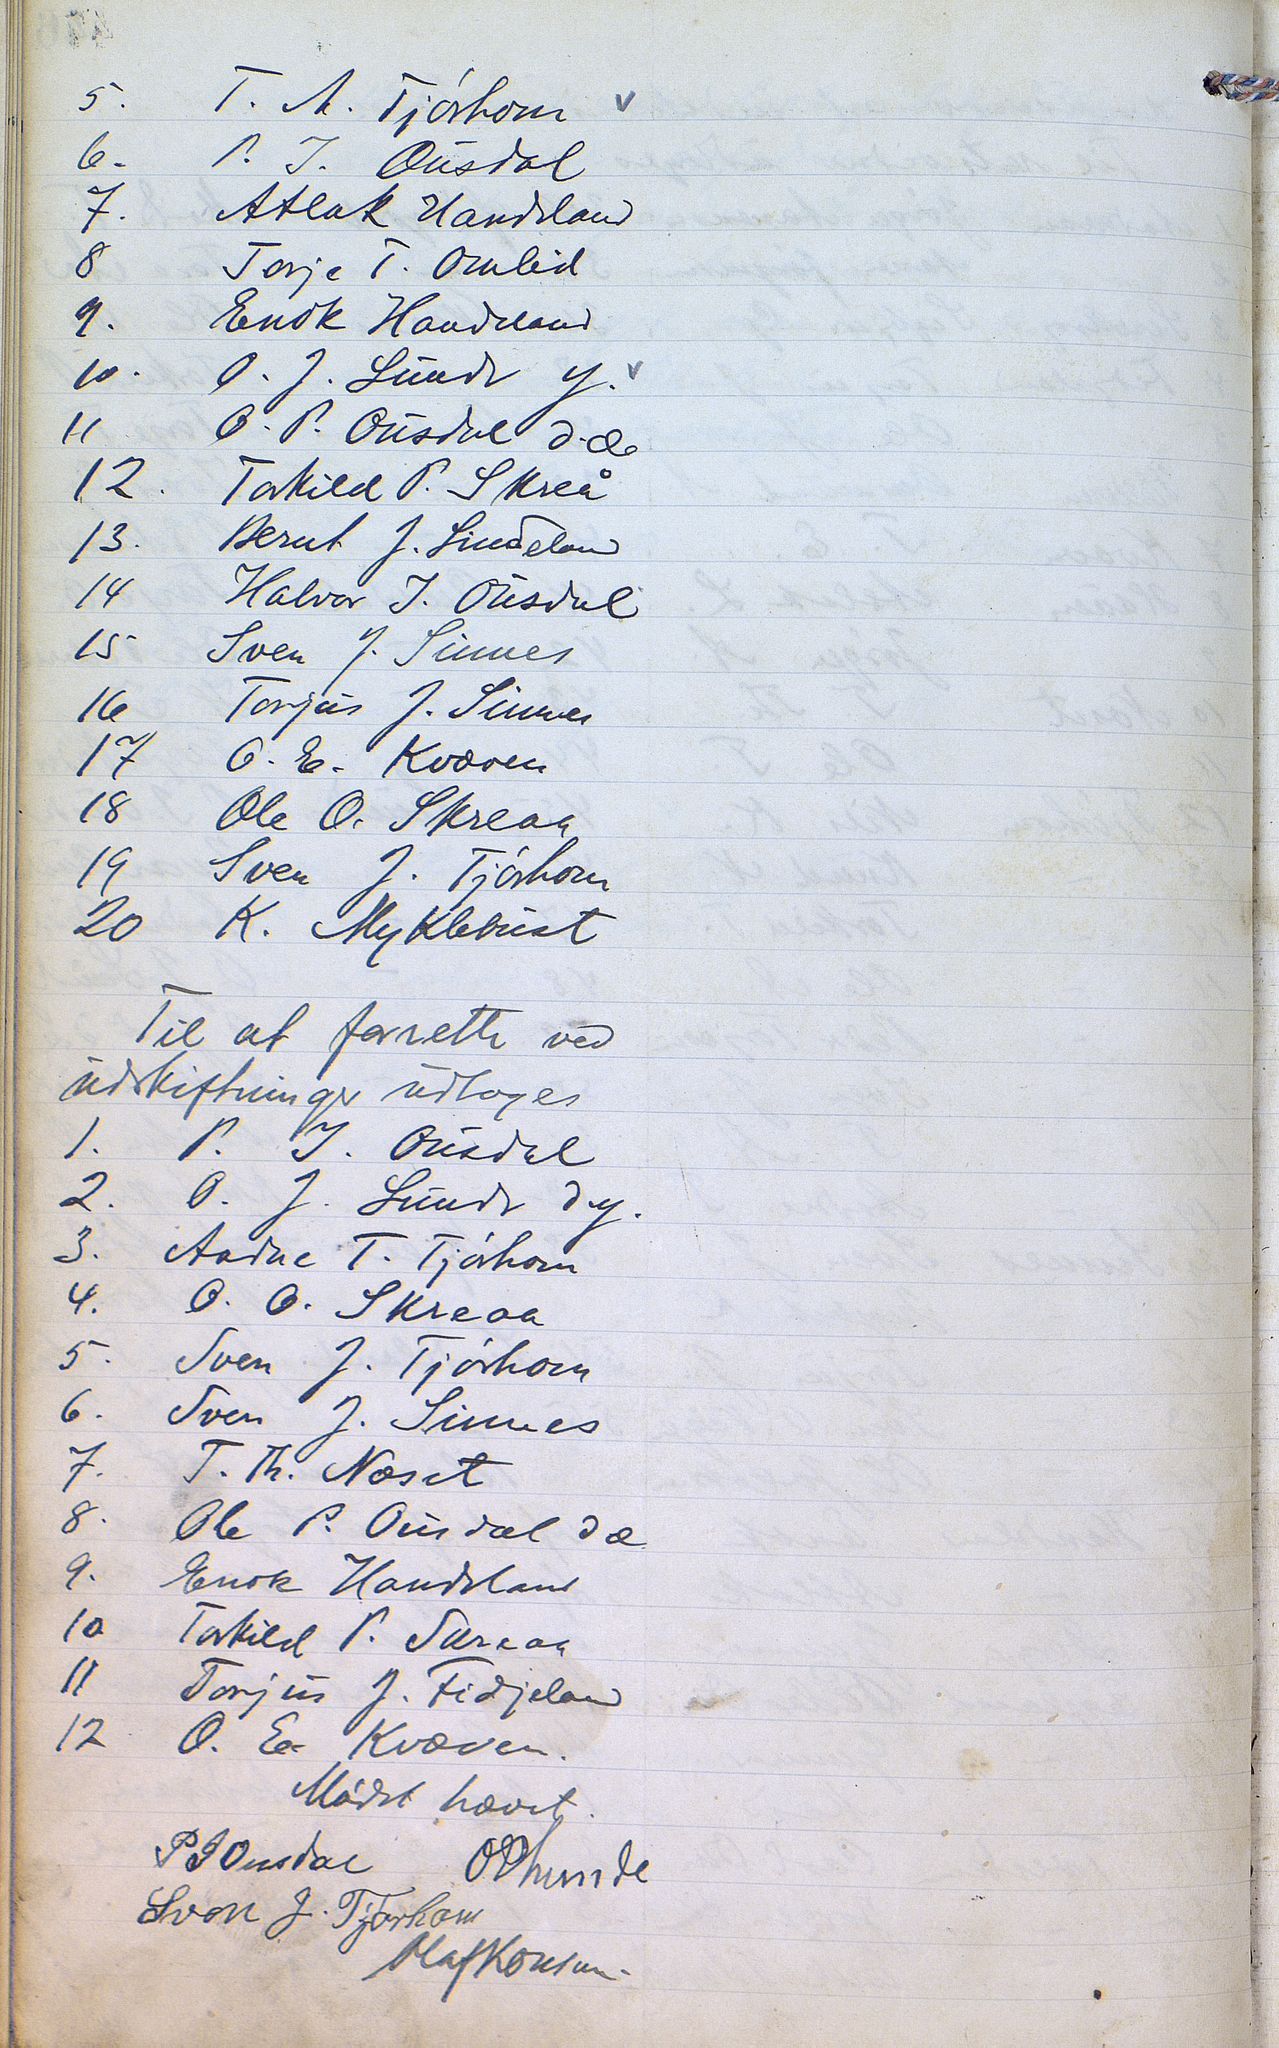 5. T. A. Tjórhom v
6. P. I. Ousdal
7. Atlak Handeland
8 Torje T. Omlid
9. Enok Handeland
10. O. J. Lunde y. v
11 O. P. Ousdal d.æ
12. Torkild P. Skreå
13. Bernt J. Sindeland
14 Halvor I. Ousdal
15 Sven J. Sinnes
16 Torjus J. Sinnes
17 O. E. Kvæven
18 Ole O. Skreaa
19 Sven J. Tjórhom
20 K. Myklebust
Til at forrette ved
udskiftninger udtoges
1. P. I. Ousdal
2. O. J. Lunde d.y.
3. Aadne T. Tjórhom
4. O. O. Skreaa
5. Sven J. Tjórhom
6. Sven J. Sinnes
7. T. Th. Næset
8. Ole P. Ousdal d æ
9. Enok Handeland
10 Torkild P. Skreaa
11 Torjus J. Fidjeland
12 O. E. Kvæven.
Mödet hævet.
P I Ousdal O Lunde
Sven J. Tjorhom
Olaf